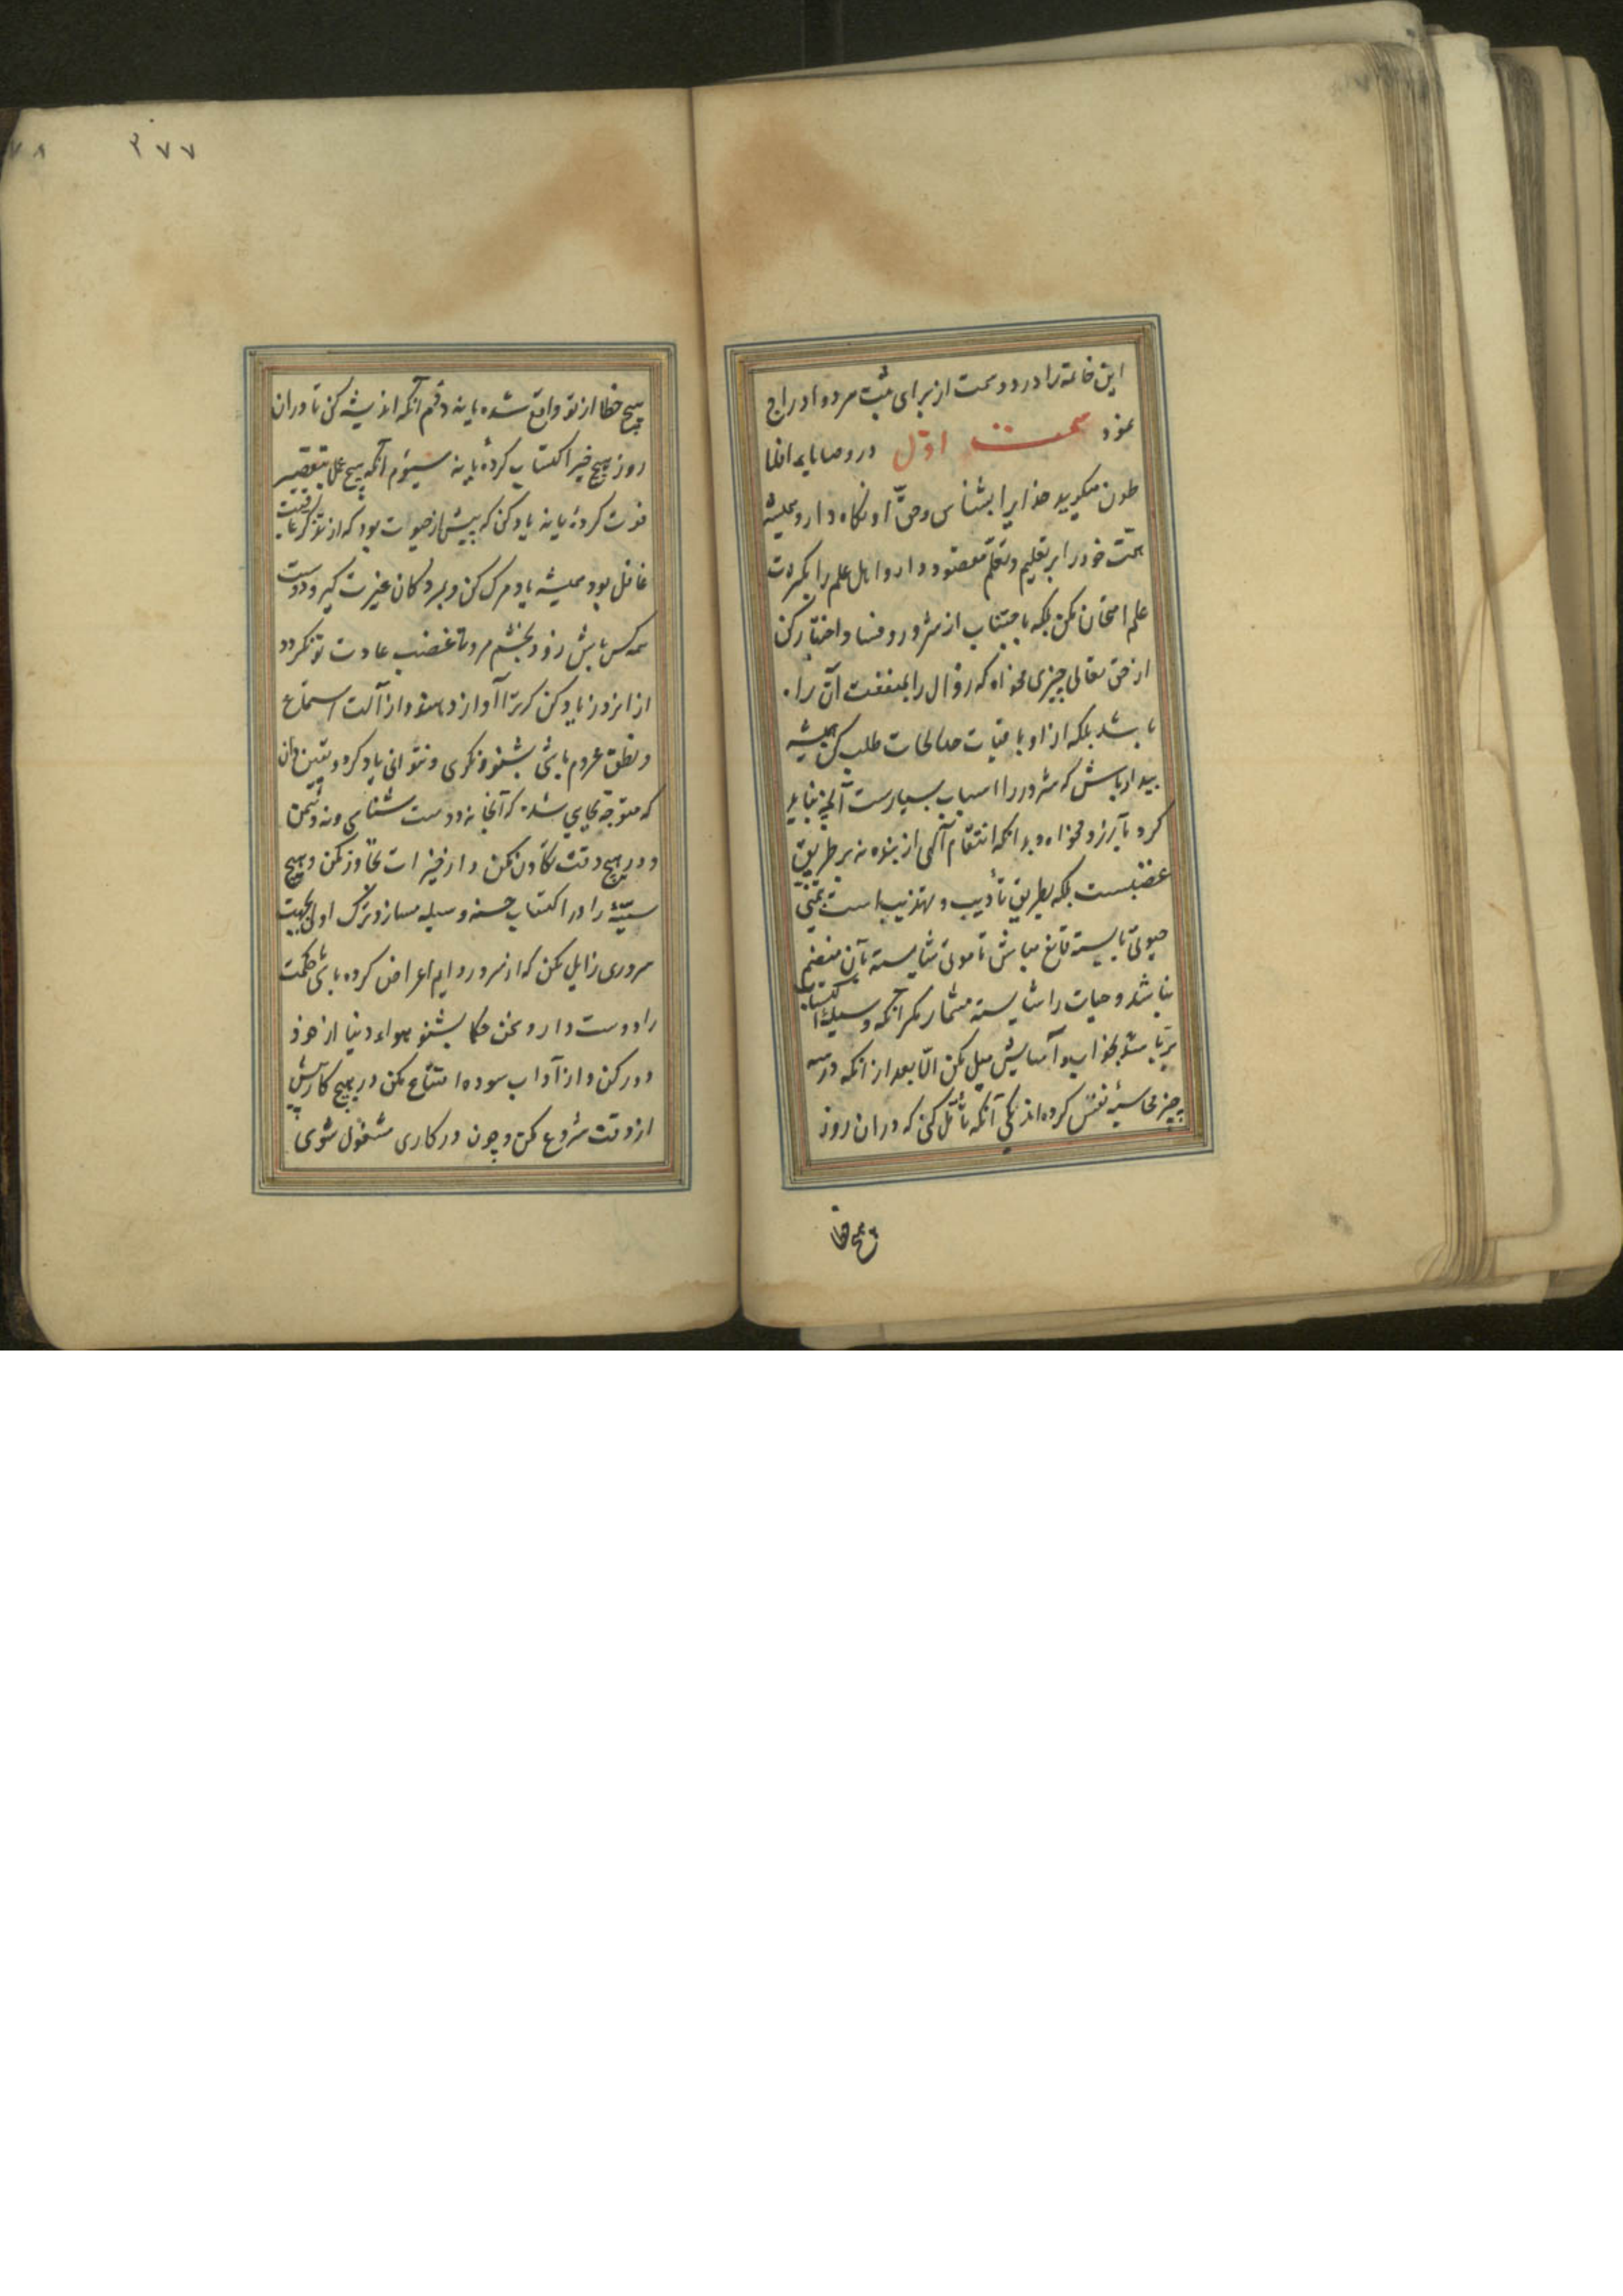 این خاتمه را در دو سمت از برای ثبت مر دو ادراج
نمود سمت اوّل در وصایاء افلا
طون میگوید خدایرا بشناس و حقّ او نگاه دار و همیشه
همّت خود را بر تعلیم و تعلّم مقصود دار و اهل علم را بکثرت
علم امتحان مکن بلکه باجتناب از شرور و فساد اختبار کن
از حق تعالی چیزی مخواه که زوال را بمنفعت آن راه
باشد بلکه ازو باقیات صالحات طلب کن همیشه
بیدار باش که شرور را اسباب بسیارست آنچه نباید
کرد بآرزو مخواه و بدانکه انتقام آلهی از بنده نه بر طریق
غضبست بلکه بطریق تأدیب و تهذیب است بتمنی
حیوتی بایسته قانع مباش تا موتی شایسته بآن منضم
نباشد و حیات را شایسته مشمار مگر آنکه وسیلهٔ اکتساب
برّ باشد بخواب و آسایش میل مکن الّا بعد از انکه در سه
چیز محاسبهٔ نفس کرده‌ای یکی آنکه تأمّل کنی که در ان روز
هیچ خطا
۳۷۷
۷۸
هیچ خطا از تو واقع شده یا نه دوّم آنکه اندیشه کن تا در ان
روز هیچ خیر اکتساب کردهٔ یا نه سیوّم آنکه هیچ عمل بتقصیر
فوت کردهٔ یا نه یاد کن که پیش از حیوت بود که از تذکر عاقبت
غافل بود همیشه یاد مرگ کن و بمردگان عبرت گیر و دوست
همه کس باش زود بخشم مرو تا غضب عادت تو نگردد
از انروز یاد کن که ترا آواز دهند و از آلت استماع
و نطق محروم باشی نشنو و نگوی و نتوانی یاد کرد و یقین دان
که متوجّه بجایی شدهٔ که آنجا نه دوست شناسی و نه دشمن
و در هیچ وقت تهاون مکن و از خیرات تجاوز مکن و هیچ
سیّئه را در اکتساب حسنه وسیله مساز و ترک اولی بجهت
سروری زایل مکن که از سرور دایم اعراض کرده باشی حکمت
را دوست دار و سخن حکما بشنو هواء دنیا از خود
دور کن و از آداب ستوده امتناع مکن در هیچ کار پیش
از وقت شروع مکن و چون در کاری مشغول شوی